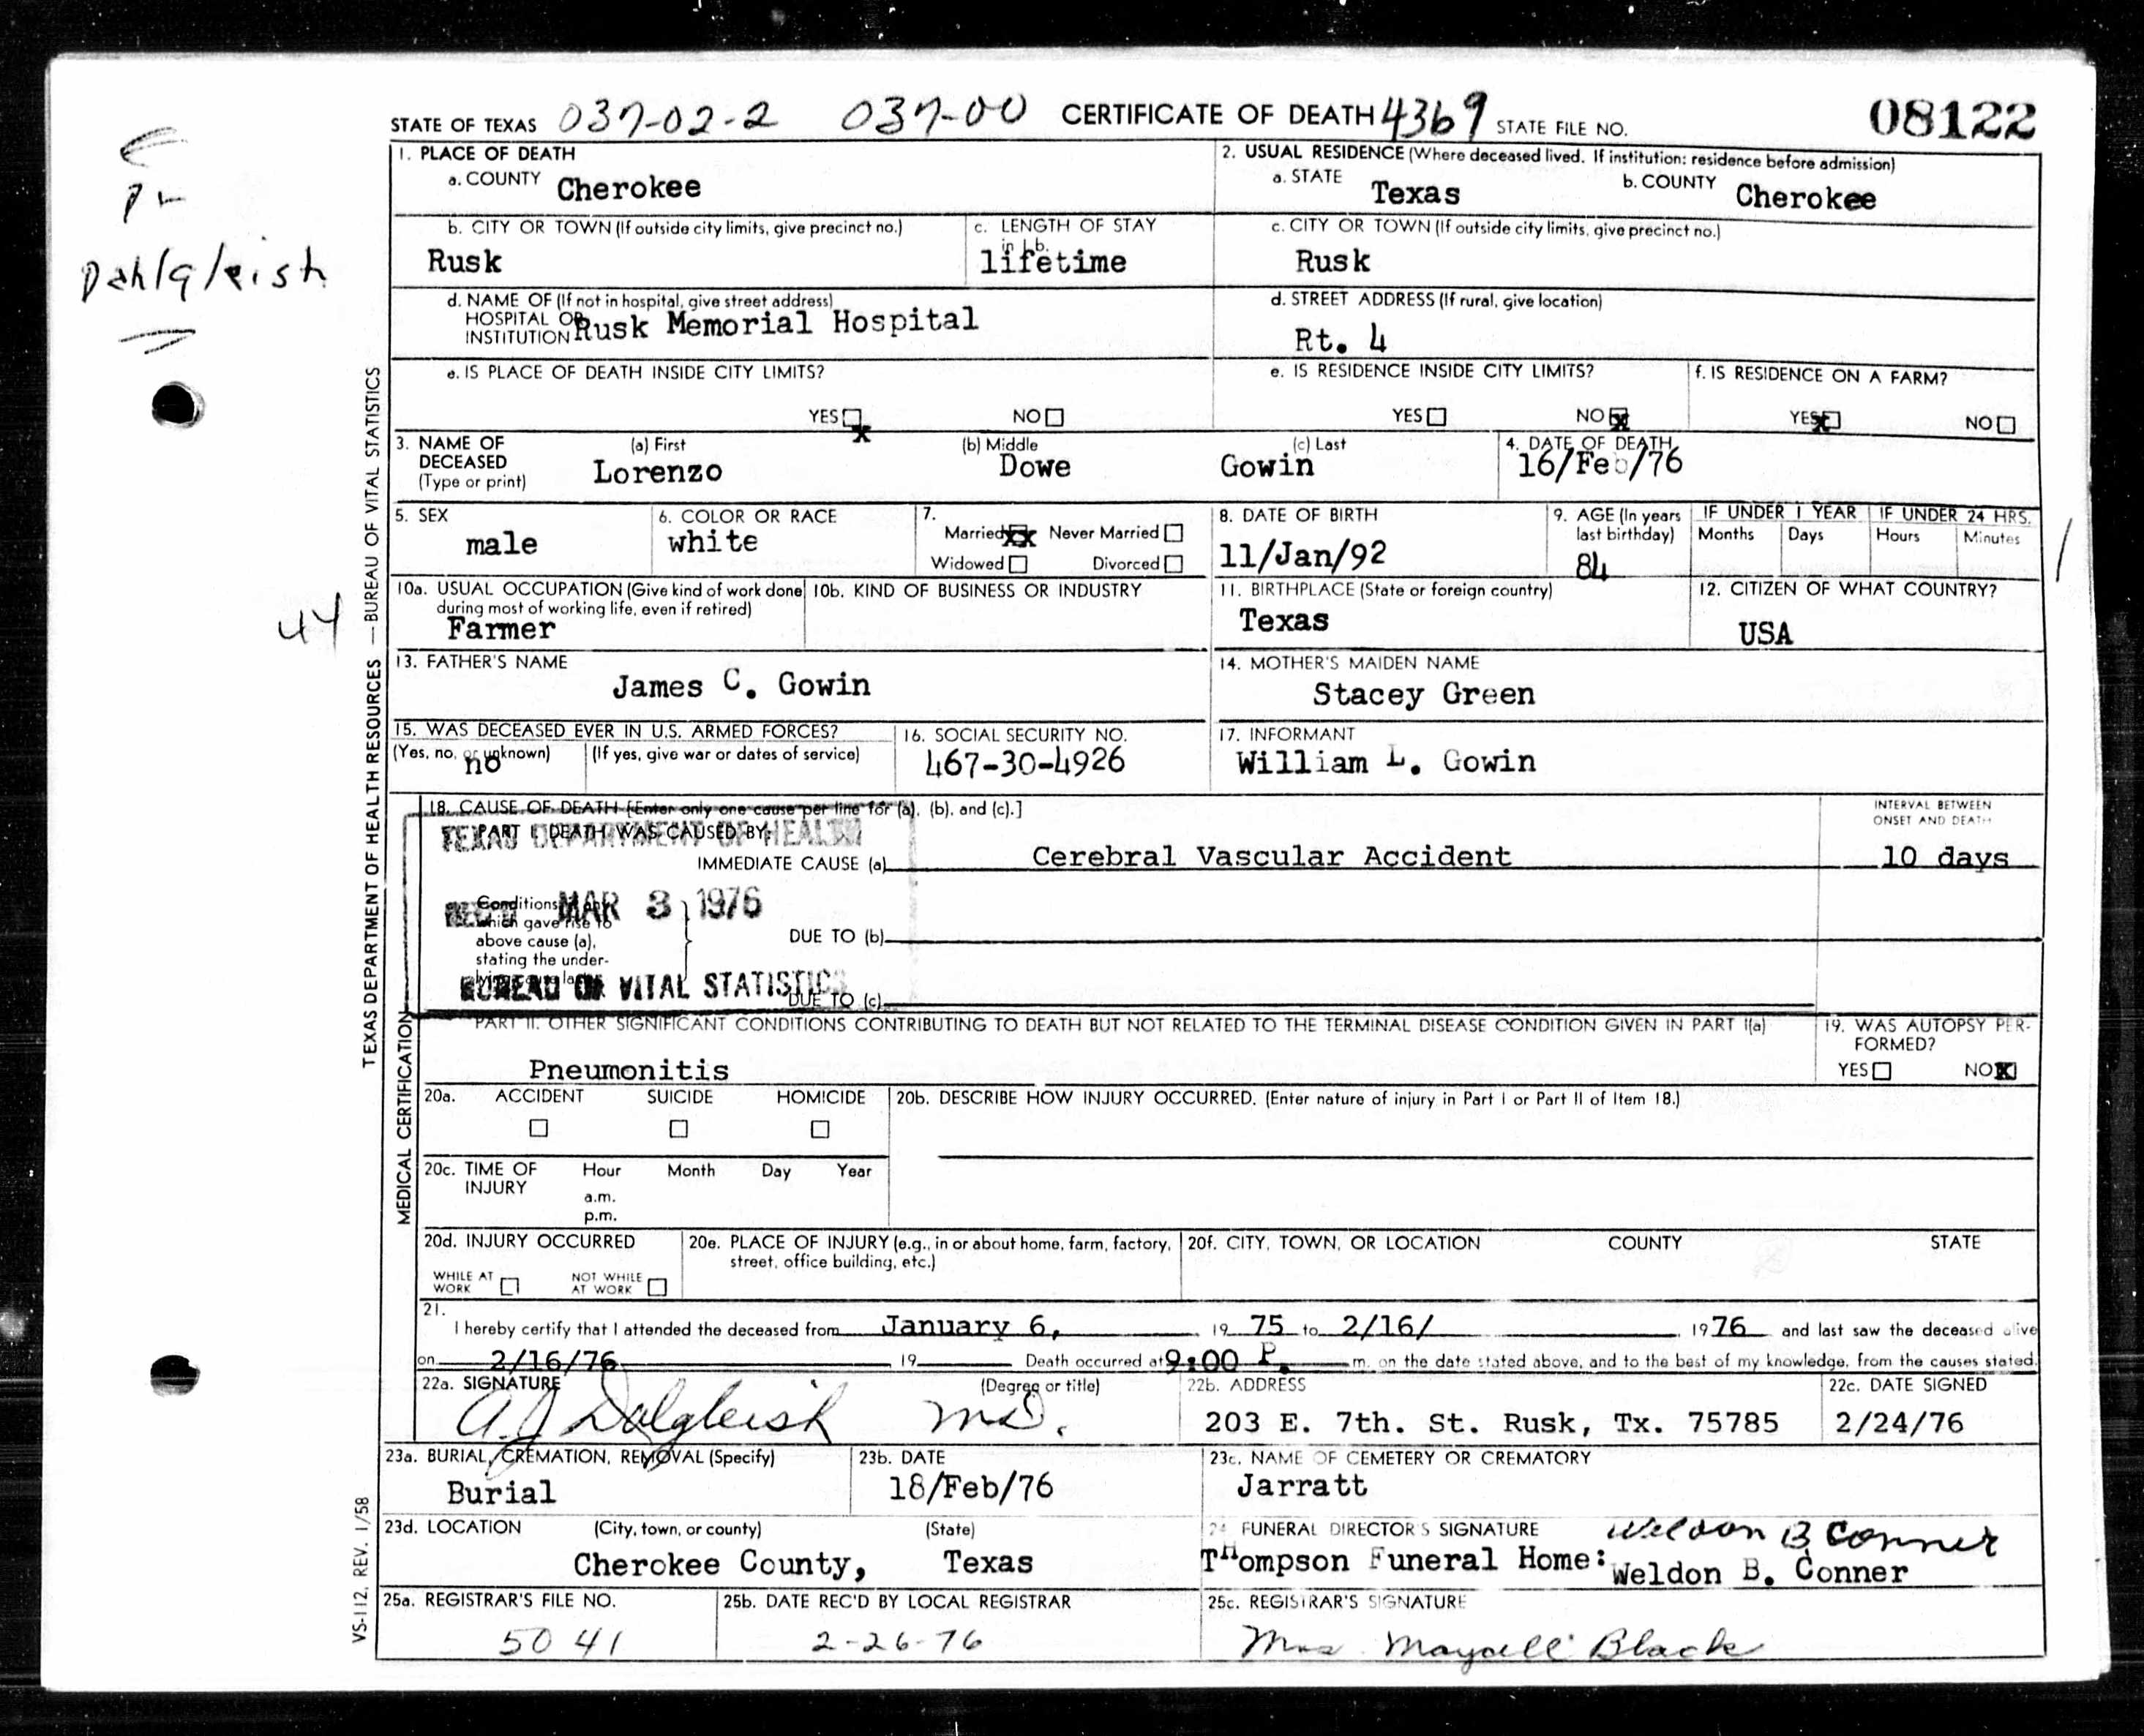 STATE OF TEXAS 037-02-2 037-00 CERTIFICATE OF DEATH 4369 STATE FILE NO. 08122
Dahlgleish
44
TEXAS DEPARTMENT OF HEALTH RESOURCES — BUREAU OF VITAL STATISTICS
1. PLACE OF DEATH
a. COUNTY Cherokee
2. USUAL RESIDENCE (Where deceased lived. If institution: residence before admission)
a. STATE Texas b. COUNTY Cherokee
b. CITY OR TOWN (If outside city limits, give precinct no.)
Rusk
c. LENGTH OF STAY
in 1b.
lifetime
c. CITY OR TOWN (If outside city limits, give precinct no.)
Rusk
d. NAME OF (If not in hospital, give street address)
HOSPITAL OR
INSTITUTION Rusk Memorial Hospital
d. STREET ADDRESS (If rural, give location)
Rt. 4
e. IS PLACE OF DEATH INSIDE CITY LIMITS?
YES x NO
e. IS RESIDENCE INSIDE CITY LIMITS?
YES NO x
f. IS RESIDENCE ON A FARM?
YES x NO
3. NAME OF (a) First (b) Middle (c) Last
DECEASED Lorenzo Dowe Gowin
(Type or print)
4. DATE OF DEATH
16/Feb/76
5. SEX
male
6. COLOR OR RACE
white
7.
Married xx Never Married
Widowed Divorced
8. DATE OF BIRTH
11/Jan/92
9. AGE (In years
last birthday)
84
IF UNDER 1 YEAR IF UNDER 24 HRS.
Months Days Hours Minutes
10a. USUAL OCCUPATION (Give kind of work done
during most of working life, even if retired)
Farmer
10b. KIND OF BUSINESS OR INDUSTRY
11. BIRTHPLACE (State or foreign country)
Texas
12. CITIZEN OF WHAT COUNTRY?
USA
13. FATHER'S NAME
James C. Gowin
14. MOTHER'S MAIDEN NAME
Stacey Green
15. WAS DECEASED EVER IN U.S. ARMED FORCES?
(Yes, no, or unknown) (If yes, give war or dates of service)
no
16. SOCIAL SECURITY NO.
467-30-4926
17. INFORMANT
William L. Gowin
MEDICAL CERTIFICATION
18. CAUSE OF DEATH [Enter only one cause per line for (a), (b), and (c).]
PART I. DEATH WAS CAUSED BY:
TEXAS DEPARTMENT OF HEALTH
IMMEDIATE CAUSE (a) Cerebral Vascular Accident
INTERVAL BETWEEN
ONSET AND DEATH
10 days
MAR 3 1976
Conditions
which gave rise to
above cause (a),
stating the under-
DUE TO (b)
BUREAU OF VITAL STATISTICS
DUE TO (c)
PART II. OTHER SIGNIFICANT CONDITIONS CONTRIBUTING TO DEATH BUT NOT RELATED TO THE TERMINAL DISEASE CONDITION GIVEN IN PART I(a)
Pneumonitis
19. WAS AUTOPSY PER-
FORMED?
YES NO X
20a. ACCIDENT SUICIDE HOMICIDE
20b. DESCRIBE HOW INJURY OCCURRED. (Enter nature of injury in Part I or Part II of Item 18.)
20c. TIME OF Hour Month Day Year
INJURY
a.m.
p.m.
20d. INJURY OCCURRED
WHILE AT NOT WHILE
WORK AT WORK
20e. PLACE OF INJURY (e.g., in or about home, farm, factory,
street, office building, etc.)
20f. CITY, TOWN, OR LOCATION COUNTY STATE
21.
I hereby certify that I attended the deceased from January 6, 19 75 to 2/16/ 1976 and last saw the deceased alive
on 2/16/76 19 Death occurred at 9:00 P. m. on the date stated above, and to the best of my knowledge, from the causes stated.
22a. SIGNATURE (Degree or title)
A.J Dalgleish MD.
22b. ADDRESS
203 E. 7th. St. Rusk, Tx. 75785
22c. DATE SIGNED
2/24/76
23a. BURIAL, CREMATION, REMOVAL (Specify)
Burial
23b. DATE
18/Feb/76
23c. NAME OF CEMETERY OR CREMATORY
Jarratt
23d. LOCATION (City, town, or county) (State)
Cherokee County, Texas
24 FUNERAL DIRECTOR'S SIGNATURE Weldon B Conner
THompson Funeral Home: Weldon B. Conner
25a. REGISTRAR'S FILE NO.
5041
25b. DATE REC'D BY LOCAL REGISTRAR
2-26-76
25c. REGISTRAR'S SIGNATURE
Mrs Maydell Black
VS-112, REV. 1/58